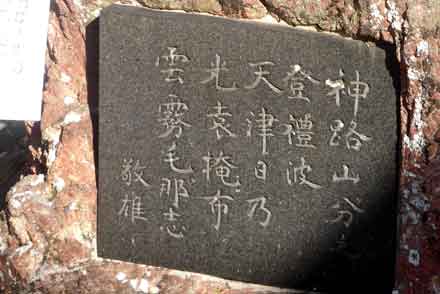 神路山分
登禮波
天津日乃
光袁掩布
雲霧毛那志
敬雄